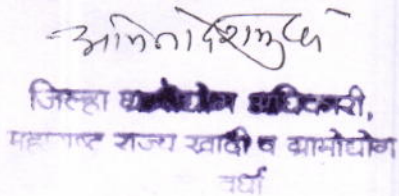 जिल्हा ग्रामोद्योग अधिकारी,
महाराष्ट्र राज्य खादी व ग्रामोद्योग
वर्धा